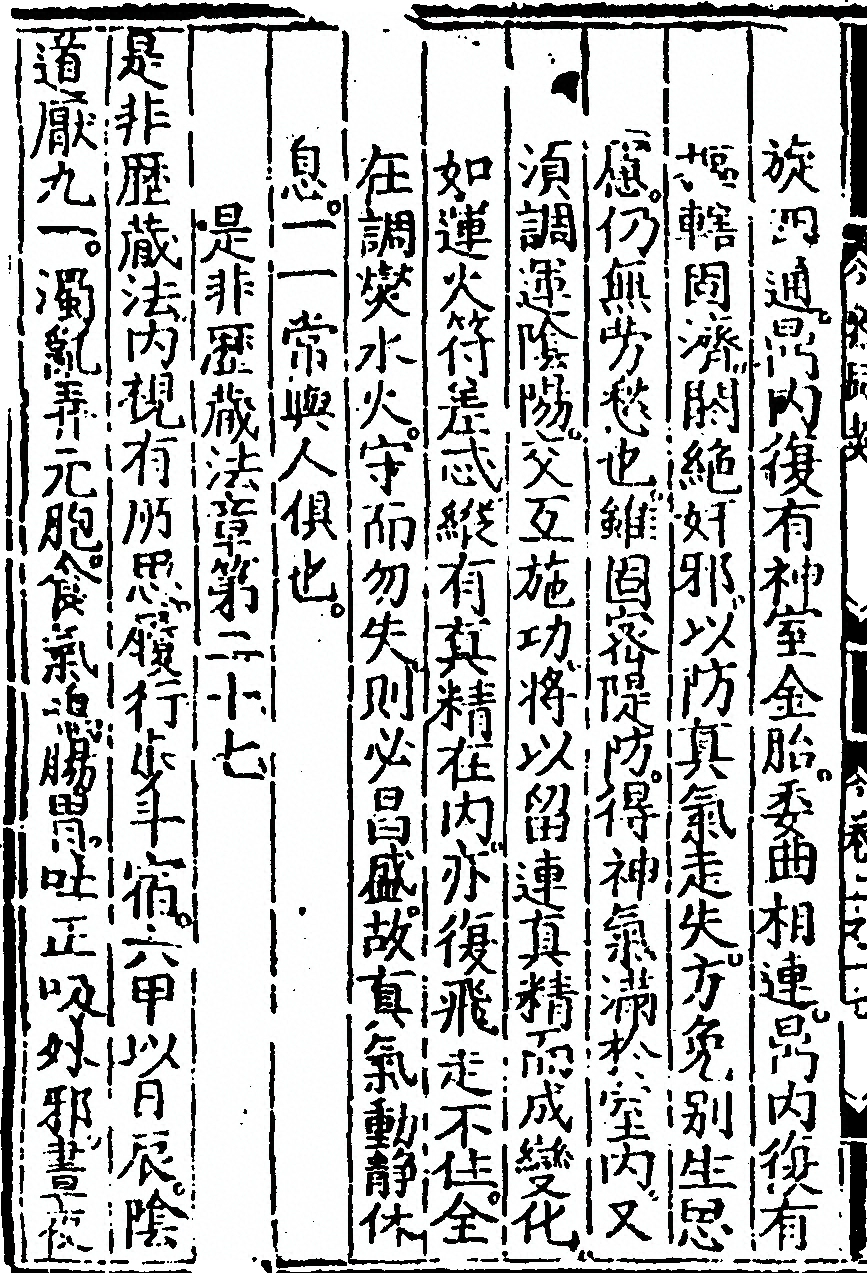 旋四通。鼎内復有神室金胎。委曲相連。鼎内復有
樞轄固濟。關絶奸邪。以防真氣走失。方免别生思
慮。仍無勞愁也。雖固密隄防。得神氣滿於室内。又
湏調運陰陽。交互施功。将以留連真精而成變化
如運火符差忒縱有真精在内。亦復飛走不住。全
在調燮水火。守而勿失。則必昌盛。故真氣動静休
息。一一常與人俱也。
是非歷蔵法章第二十七
是非歷蔵法内視有所思。履行步斗宿。六甲以日辰。陰
道厭九一。濁亂弄元胞。食氣鳴腸胃。吐正吸外邪。晝夜